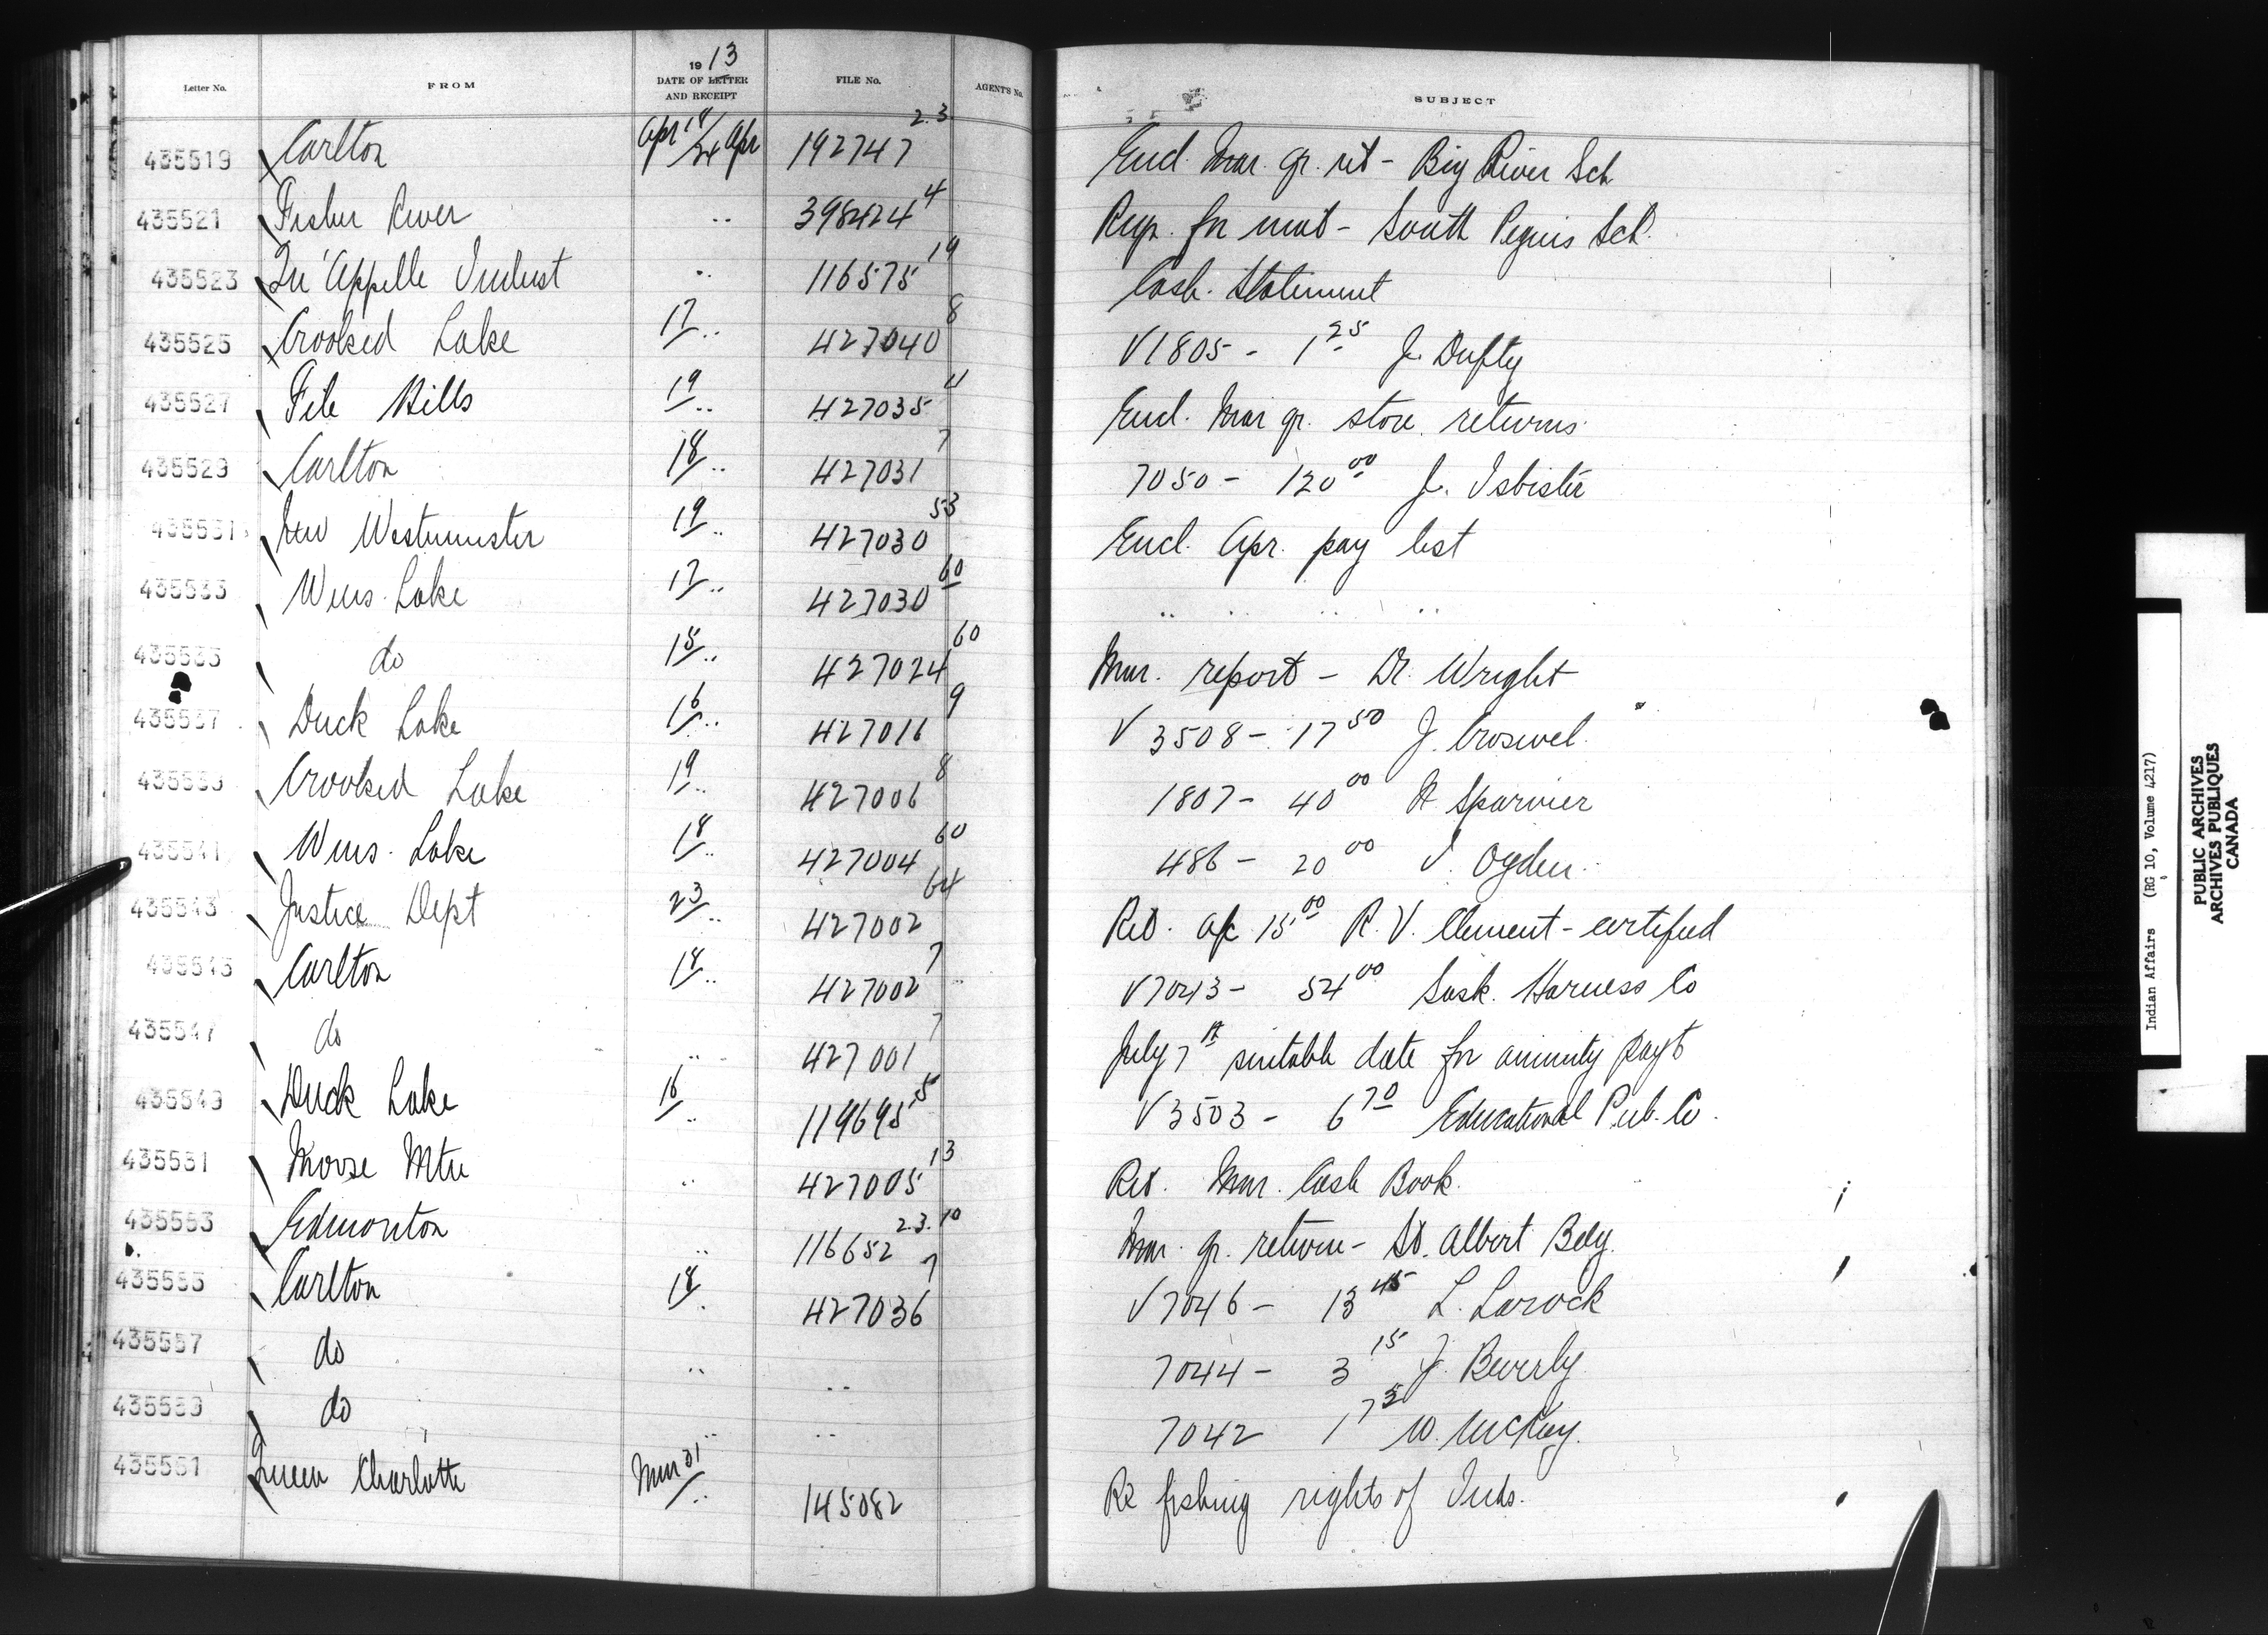 Letter No. FROM 1913 DATE OF LETTER AND RECEIPT FILE No. AGENT'S No. SUBJECT
435519 Carlton Apr 18/24 Apr 192747 2.3. Encl. Mar. qr. ret - Big River Sch
435521 Fisher River .. 398424 4 Req. for mat - South Peguis Sch.
435523 Qu'Appelle Indust .. 116575 19 Cash. Statement
435525 Crooked Lake 17/.. 427040 8 V1805 - 1 25 J. Dufty
435527 File Hills 19/.. 427035 4 Encl. Mar qr. store returns
435529 Carlton 18/.. 427031 7 7050 - 120 00 J. Isbister
435531 New Westminster 19/.. 427030 53 Encl. Apr. pay list
435533 Wms. Lake 17/.. 427030 60 .. .. .. ..
435535 do 15/.. 427024 60 Mar. report - Dr. Wright
435537 Duck Lake 16/.. 427016 9 V 3508 - 17 50 J. Croswel.
435539 Crooked Lake 19/.. 427006 8 1807 - 40 00 N Sparvier
435541 Wms. Lake 18/.. 427004 60 486 - 20 00 Ogden.
435543 Justice Dept 23/.. 427002 64 Ret. a/c 15 00 R. V. Clement - certified
435545 Carlton 18/.. 427002 7 V7043 - 54 00 Sask. Harness Co
435547 do .. 427001 7 July 7th suitable date for annuity payt
435549 Duck Lake 16/.. 119695 5 V3503 - 6 70 Educational Pub. Co.
435551 Moose Mtn .. 427005 13 Ret. Mar. Cash Book.
435553 Edmonton .. 116652 2.3.10 Mar. qr. return - St. Albert Bdg.
435555 Carlton 18/. 427036 7 V7046 - 13 45 L. Larock
435557 do .. .. 7044 - 3 15 J. Beverly.
435559 do .. .. 7042 1 75 W. McKay.
435561 Queen Charlotte Mar 31/.. 145082 Re fishing rights of Inds.
Indian Affairs (RG 10, Volume 4217)
PUBLIC ARCHIVES
ARCHIVES PUBLIQUES
CANADA